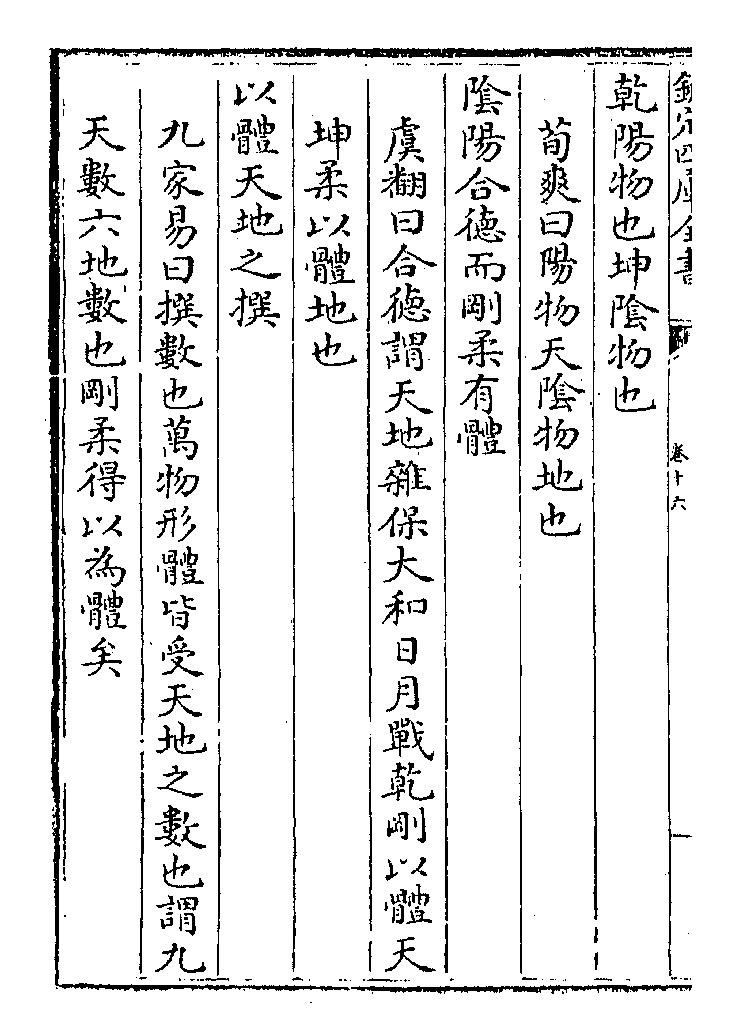 欽定四庫全書
卷十六
乾陽物也坤陰物也
荀爽曰陽物天陰物地也
陰陽合德而剛柔有體
虞翻曰合德謂天地雜保大和日月戰乾剛以體天
坤柔以體地也
以體天地之撰
九家易曰撰數也萬物形體皆受天地之數也謂九
天數六地數也剛柔得以為體矣